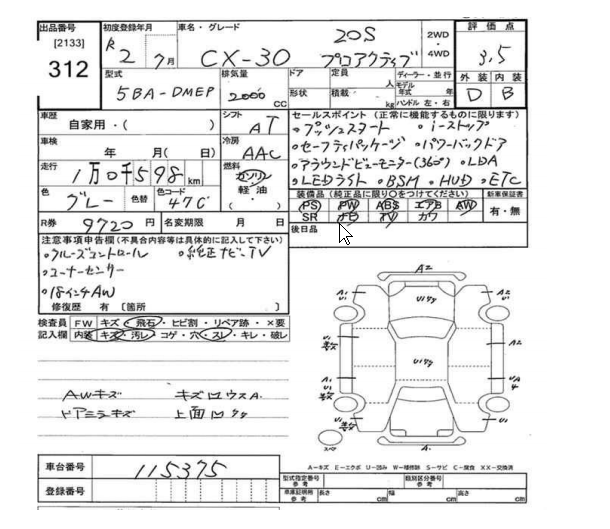 出品番号 初度登録年月 車名・グレード 評価点
[2133]
312
R2 7月 CX-30 20S プロアクティブ 2WD・4WD 3.5
外装 内装
D B
型式 排気量 ドア 定員 人 ディーラー・並行
形状 積載 kg モデル年式 年
ハンドル 左・右
5BA-DMEP 2000 CC
車歴 シフト セールスポイント(正常に機能するものに限ります)
自家用・( ) AT ・プッシュスタート ・i-ストップ
車検 冷房 ・セーフティパッケージ ・パワーバックドア
年 月( 日) AAC ・アラウンドビューモニター(360°) ・LDA
走行 燃料 ・LEDライト ・BSM ・HUD ・ETC
1万0千598km ガソリン 軽油・( )
色 色替 色コード 装備品(純正品に限り○をつけてください) 新車保証書
グレー 47C PS PW ABS エアB AW 有・無
SR ナビ TV カワ
R券 9720円 名変期限 月 日 後日品
注意事項申告欄(不具合内容等は具体的に記入して下さい)
・クルーズコントロール ・純正ナビ・TV
・コーナーセンサー
・18インチAW
修復歴 有 〔箇所 〕
検査員記入欄 FW キズ・飛石・ヒビ割・リペア跡・×要
内装 キズ・汚レ・コゲ・穴・スレ・キレ・破レ
AWキズ キズ
ドアミラーキズ 上面
A2
A1 U1
A2
U1
A1
U1
A-キズ E-エクボ U-凹み W-補修跡 S-サビ C-腐食 XX-交換済
車台番号 115375
登録番号
型式指定番号 参考 類別区分番号 参考
車庫証明用 参考 長さ cm 幅 cm 高さ cm